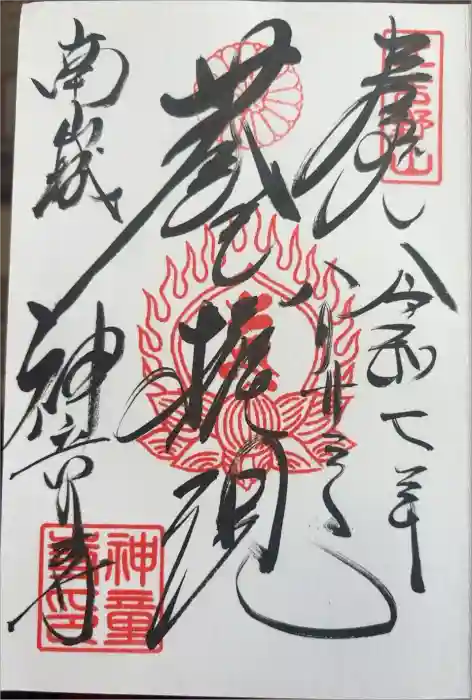 奉拝
令和七年
八月廿三日
蔵王権現
南山城
神童寺
北吉野山
神童寺印